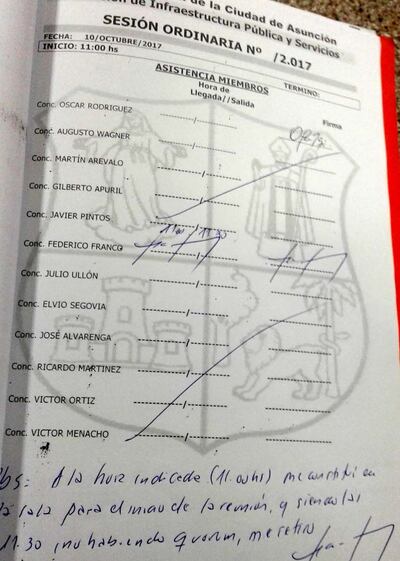 de la Ciudad de Asunción
de Infraestructura Pública y Servicios
SESIÓN ORDINARIA Nº /2.017
FECHA: 10/OCTUBRE/2017
INICIO: 11:00 hs TERMINO:
ASISTENCIA MIEMBROS
Hora de
Llegada//Salida Firma
Conc. OSCAR RODRIGUEZ
Conc. AUGUSTO WAGNER
Conc. MARTÍN AREVALO
Conc. GILBERTO APURIL
Conc. JAVIER PINTOS
11:00 / 11:30
Conc. FEDERICO FRANCO
Conc. JULIO ULLÓN
Conc. ELVIO SEGOVIA
Conc. JOSÉ ALVARENGA
Conc. RICARDO MARTINEZ
Conc. VICTOR ORTIZ
Conc. VICTOR MENACHO
Obs: A la hora indicada (11.00hs) me constituí en
la sala para el inicio de la reunión, y siendo las
11.30 no habiendo quorum, me retiro